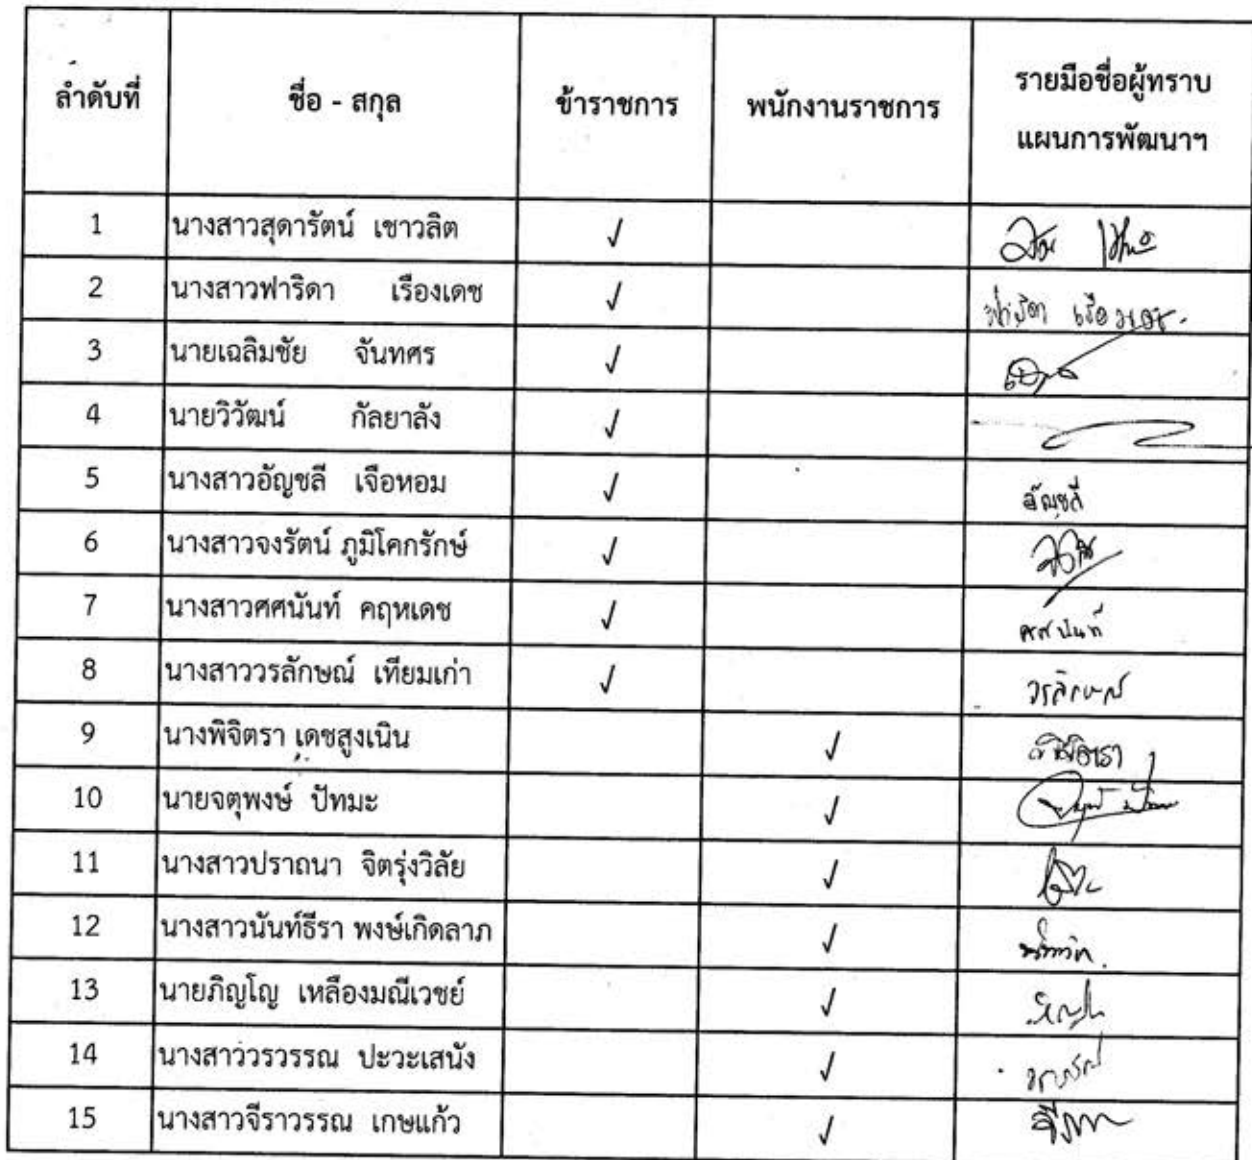 ลำดับที่ ชื่อ - สกุล ข้าราชการ พนักงานราชการ รายมือชื่อผู้ทราบ
แผนการพัฒนาฯ
1 นางสาวสุดารัตน์ เชาวลิต ✓
2 นางสาวฟาริดา เรืองเดช ✓ ฟาริดา เรืองเดช
3 นายเฉลิมชัย จันทศร ✓
4 นายวิวัฒน์ กัลยาลัง ✓
5 นางสาวอัญชลี เจือหอม ✓ อัญชลี
6 นางสาวจงรัตน์ ภูมิโคกรักษ์ ✓
7 นางสาวศศนันท์ คฤหเดช ✓ ศศนันท์
8 นางสาววรลักษณ์ เทียมเก่า ✓ วรลักษณ์
9 นางพิจิตรา เดชสูงเนิน ✓ พิจิตรา
10 นายจตุพงษ์ ปัทมะ ✓
11 นางสาวปราถนา จิตรุ่งวิลัย ✓
12 นางสาวนันท์ธีรา พงษ์เกิดลาภ ✓
13 นายภิญโญ เหลืองมณีเวชย์ ✓
14 นางสาววรวรรณ ปะวะเสนัง ✓
15 นางสาวจีราวรรณ เกษแก้ว ✓